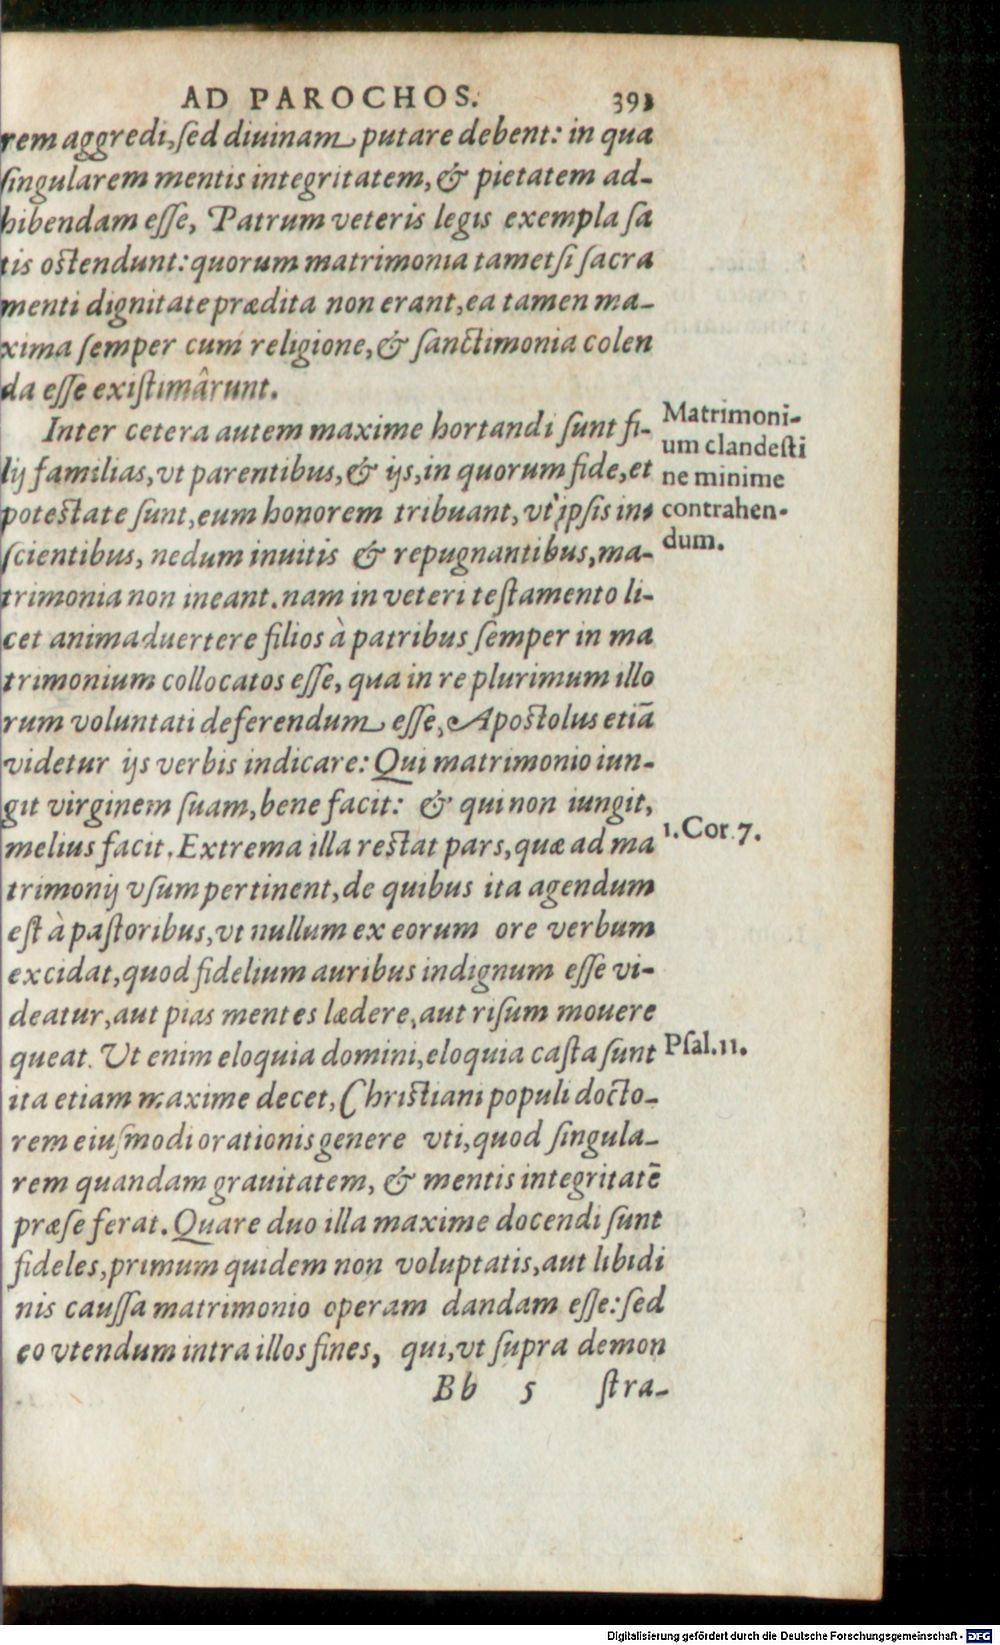 AD PAROCHOS. 393
rem aggredi, ſed diuinam putare debent: in qua
ſingularem mentis integritatem, & pietatem ad-
hibendam eſſe, Patrum veteris legis exempla ſa
tis oſtendunt: quorum matrimonia tametſi ſacra
menti dignitate prædita non erant, ea tamen ma-
xima ſemper cum religione, & ſanctimonia colen
da eſſe exiſtimârunt.
Inter cetera autem maxime hortandi ſunt fi-
lij familias, vt parentibus, & ijs, in quorum fide, et
poteſtate ſunt, eum honorem tribuant, vt ipſis in-
ſcientibus, nedum inuitis & repugnantibus, ma-
trimonia non ineant. nam in veteri teſtamento li-
cet animaduertere filios à patribus ſemper in ma
trimonium collocatos eſſe, qua in re plurimum illo
rum voluntati deferendum eſſe, Apoſtolus etiã
videtur ijs verbis indicare: Qui matrimonio iun-
git virginem ſuam, bene facit: & qui non iungit,
melius facit. Extrema illa reſtat pars, quæ ad ma
trimonij vſum pertinent, de quibus ita agendum
eſt à paſtoribus, vt nullum ex eorum ore verbum
excidat, quod fidelium auribus indignum eſſe vi-
deatur, aut pias mentes lædere, aut riſum mouere
queat. Ut enim eloquia domini, eloquia caſta ſunt
ita etiam maxime decet, Chriſtiani populi docto-
rem eiuſmodi orationis genere vti, quod ſingula-
rem quandam grauitatem, & mentis integritatẽ
præ ſe ferat. Quare duo illa maxime docendi ſunt
fideles, primum quidem non voluptatis, aut libidi
nis cauſſa matrimonio operam dandam eſſe: ſed
eo vtendum intra illos fines, qui, vt ſupra demon
Bb 5 ſtra-
Matrimoni-
um clandeſti
ne minime
contrahen-
dum.
1. Cor. 7.
Pſal. 11.
Digitalisierung gefördert durch die Deutsche Forschungsgemeinschaft - DFG